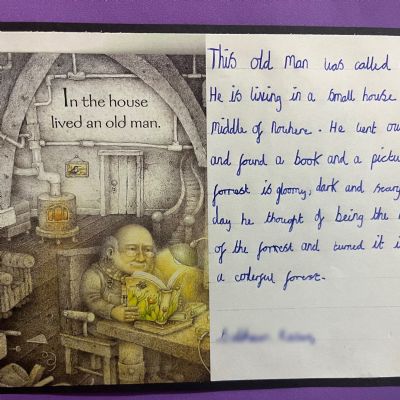 In the house
lived an old man.
This old man was called
He is living in a small house
middle of nowhere. He went ou
and found a book and a pictu
forrest is gloomy, dark and scary
day he thought of being the
of the forrest and turned it i
a colerful forest.